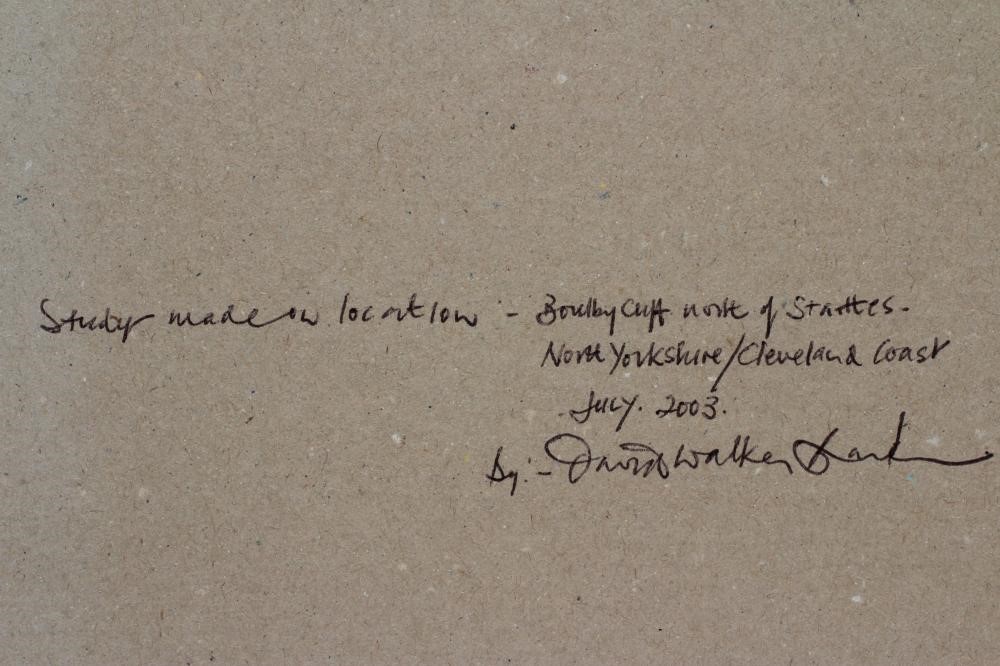 Study made on location - Boulby Cliff north of Staithes.
North Yorkshire/Cleveland Coast
July. 2003.
By:- David Walker